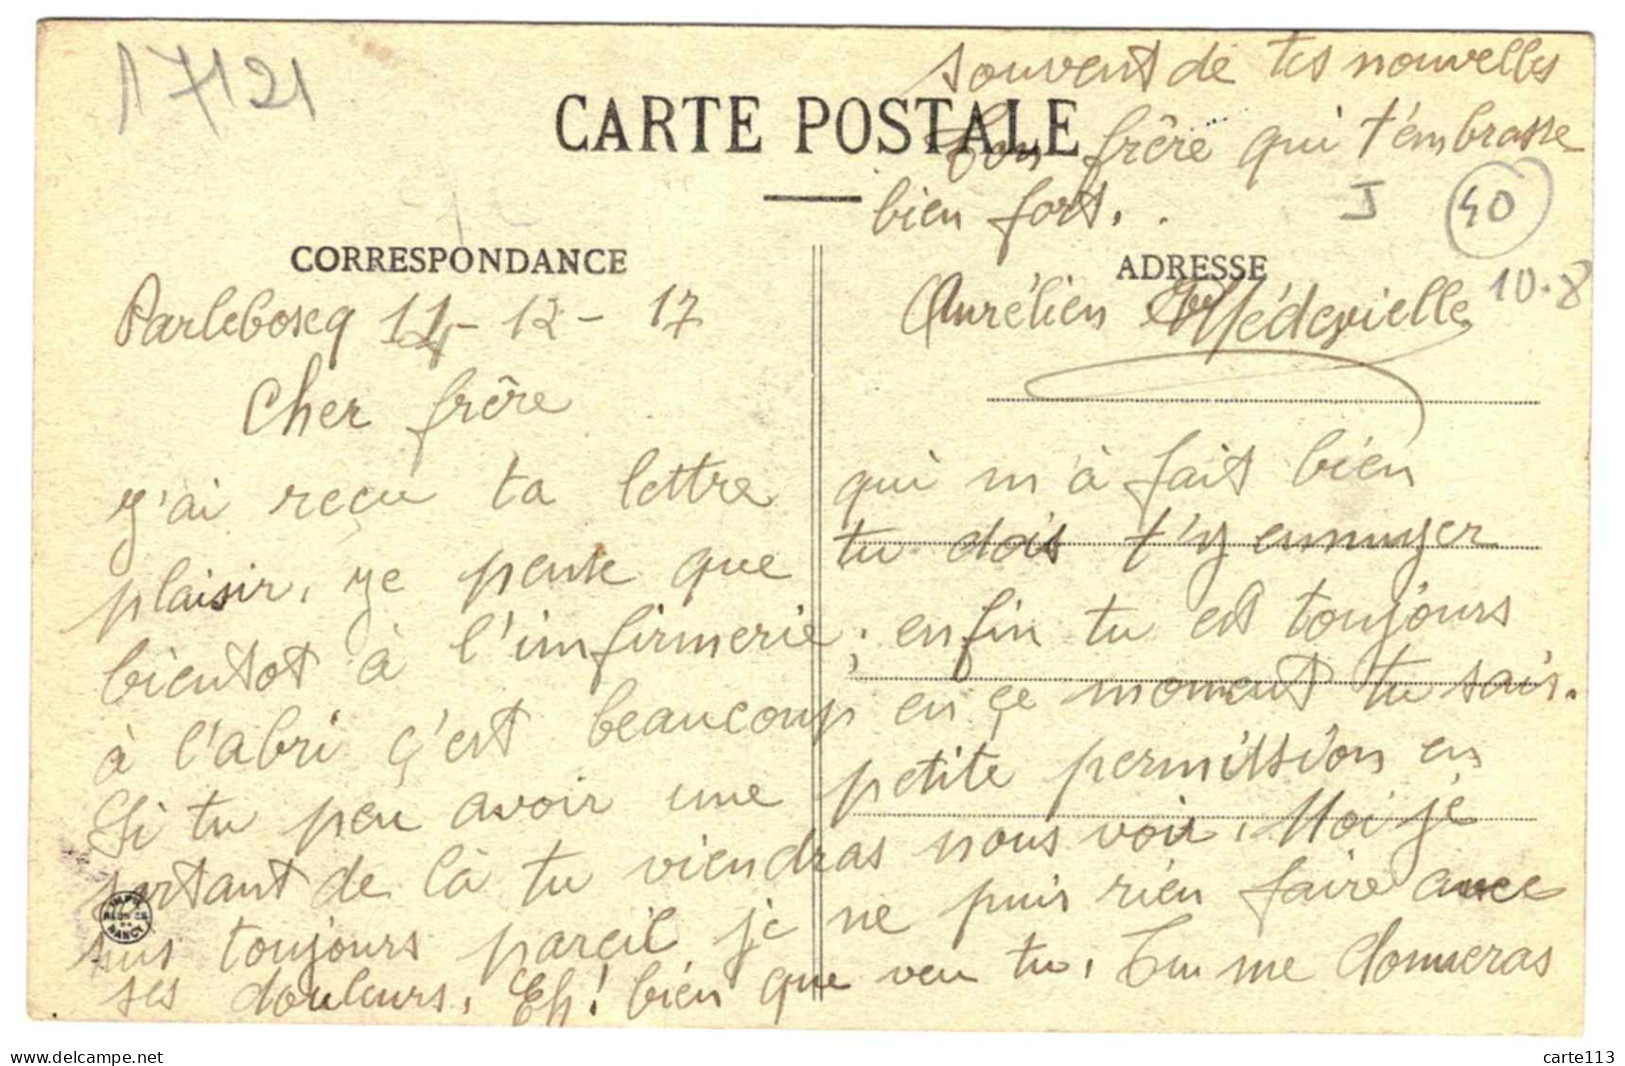 17121
CARTE POSTALE
CORRESPONDANCE
ADRESSE
J
40
10.8
Parleboscq 14-12-17
Cher frêre
J'ai reçu ta lettre qui m'à fait bien
plaisir, je pense que tu dois t'y ennuyer
bientot à l'imfirmerie; enfin tu est toujours
à l'abri ç'est beaucoup en çe moment tu sais.
Si tu peu avoir une petite permission en
sortant de là tu viendras nous voir. Moi je
suis toujours pareil je ne puis rien faire avec
ses douleurs. Eh! bien que veu tu. Tu me donneras
souvent de tes nouvelles
Ton frêre qui t'émbrasse
bien fort.
Aurélien Médevielle
delcampe.net
carte113